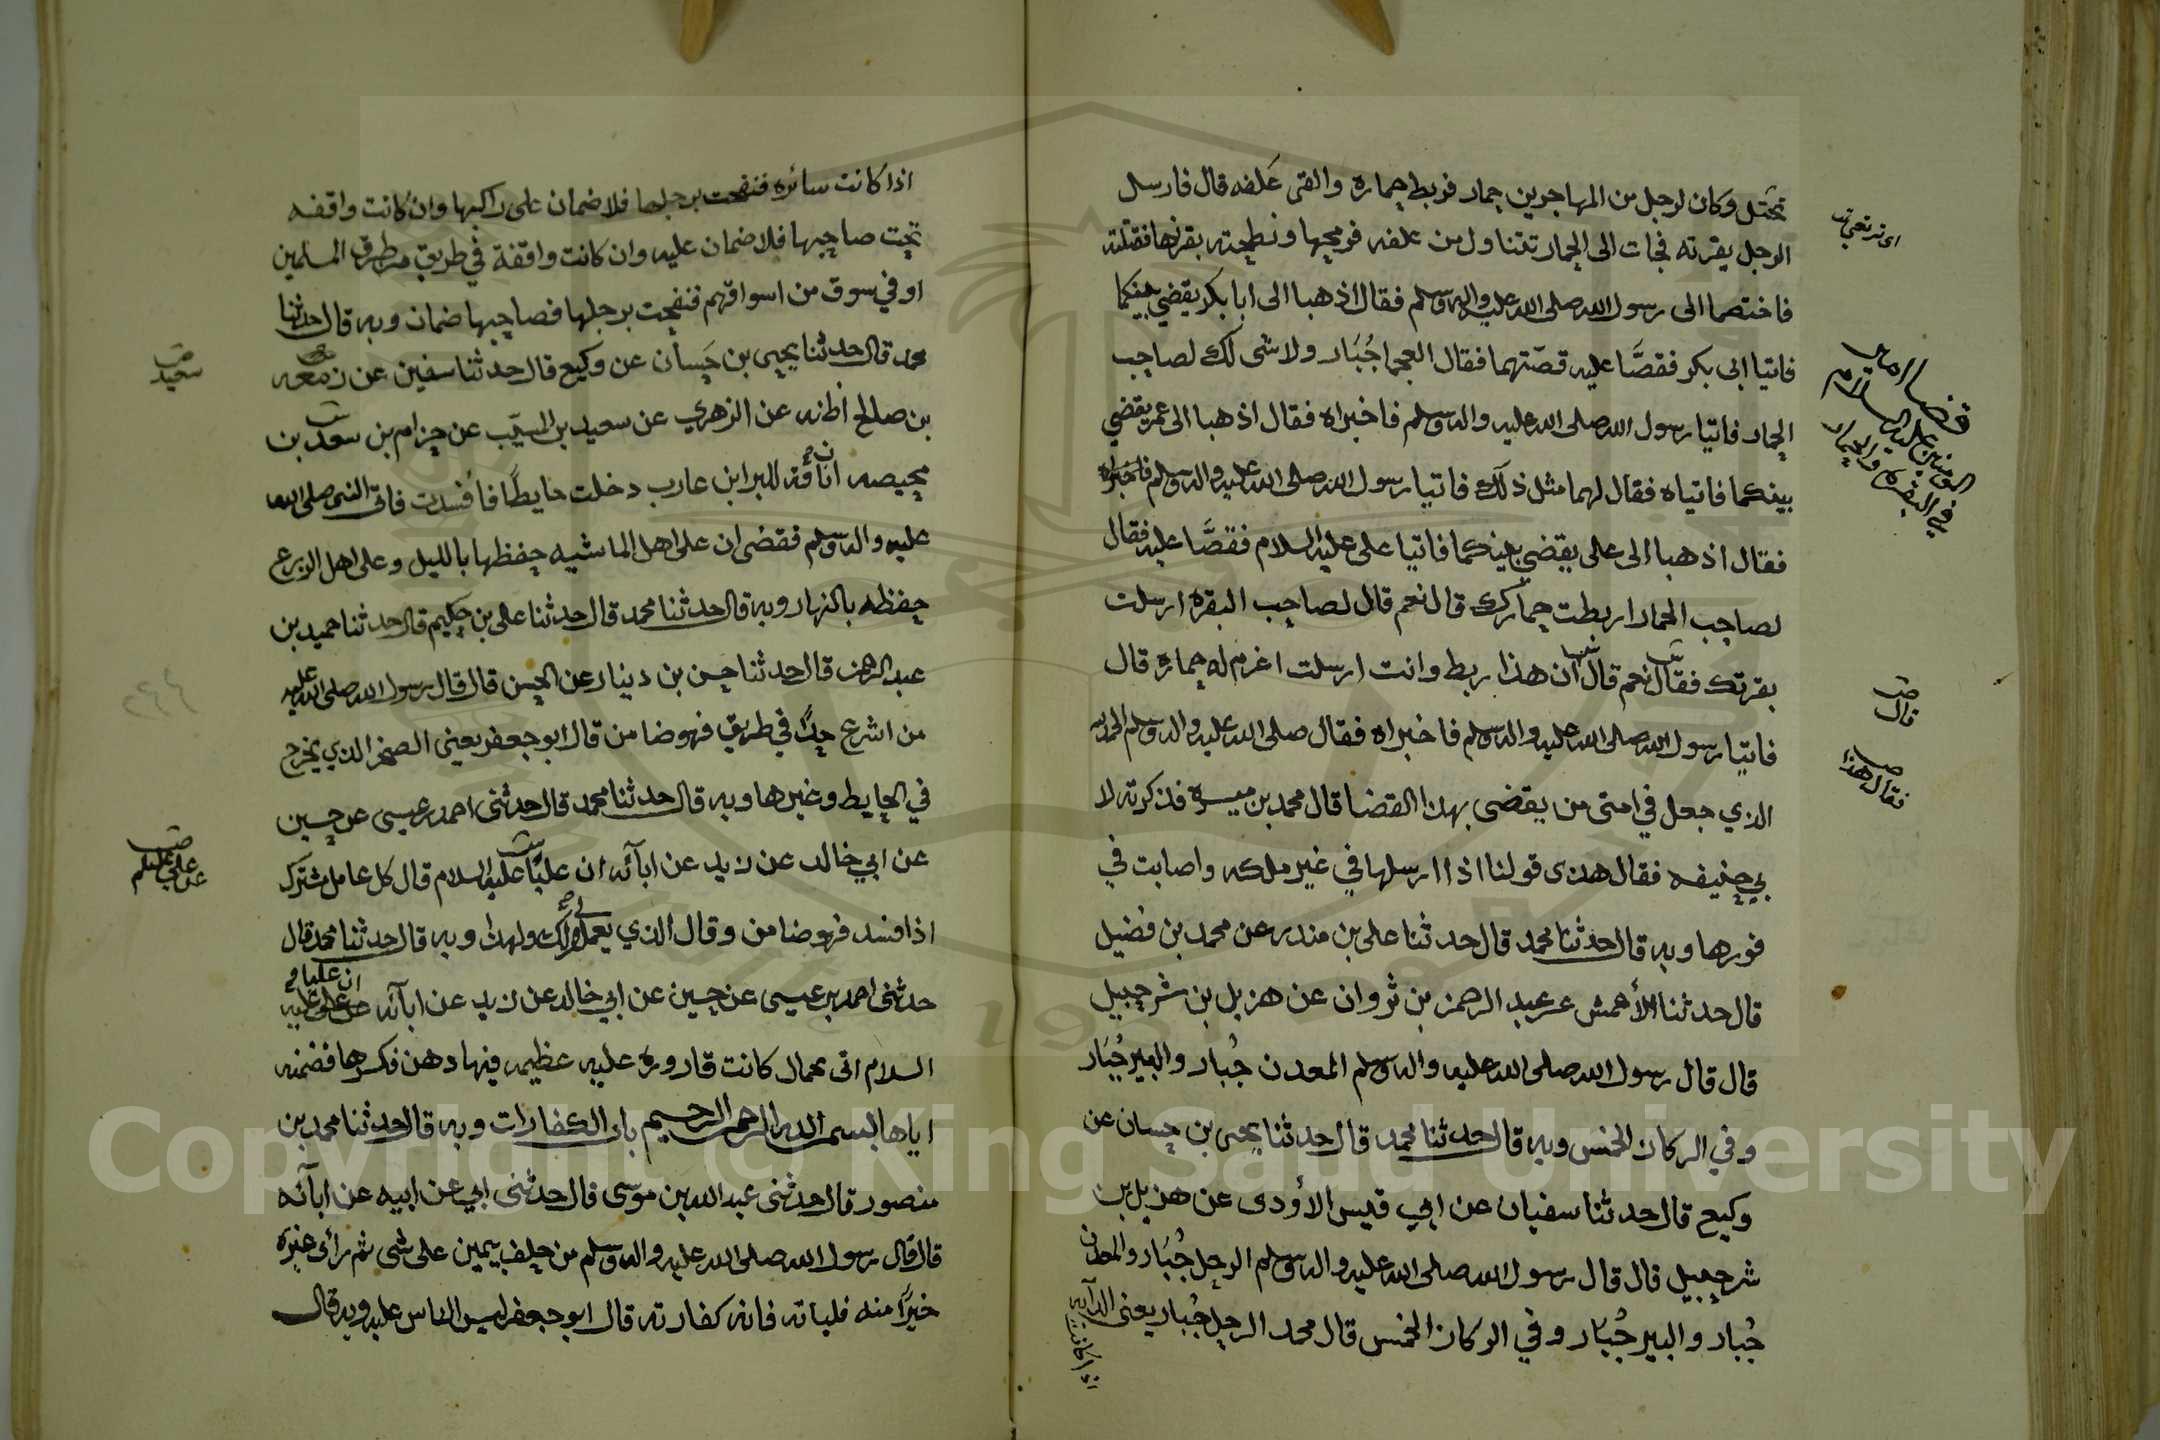 تحتل وكان لرجل من المهاجرين حمار فربط حماره والقى عَلفه قال فارسل
الرجل بقرته فجات الى الحمار تتناول من علفه فرمحها ونطحته بقرنها فقتلته
فاختصما الى رسول الله صلى الله عليه واله وسلم فقال اذهبا الى ابا بكر يقضي بينكما
فاتيا ابى بكر فقصَّا عليه قصّتهما فقال العجما جُبَار ولا شى لك لصاحب
الحمار فاتيا رسول الله صلى الله عليه واله وسلم فاخبراه فقال اذهبا الى عمر يقضي
بينكما فاتياه فقال لهما مثل ذلك فاتيا رسول الله صلى الله عليه واله وسلم فاخبراه
فقال اذهبا الى على يقضي بينكما فاتيا على عليه السلام فقصَّا عليه فقال
لصاحب الحمار اربطت حمارك قال نعم قال لصاحب البقره ارسلت
بقرتك فقال نعم قال ان هذا ربط وانت ارسلت اغرم له حماره قال
فاتيا رسول الله صلى الله عليه واله وسلم فاخبراه فقال صلى الله عليه واله وسلم الحمد لله
الذي جعل في امتى من يقضى بهذا القضا قال محمد بن ميسره فذكرته لا
بي حنيفه فقال هذى قولنا اذا ارسلها في غير ملكه واصابت في
فورها وبه قال حدثنا محمد قال حدثنا على بن منذر عن محمد بن فضيل
قال حدثنا الأعمش عن عبد الرحمن بن ثروان عن هزيل بن شرحبيل
قال قال رسول الله صلى الله عليه واله وسلم المعدن جُبار والبير جُبَار
وفي الركاز الخمس وبه قال حدثنا محمد قال حدثنا يحيى بن حسان عن
وكيع قال حدثنا سفيان عن ابي قيس الأودى عن هزيل بن
شرحبيل قال قال رسول الله صلى الله عليه واله وسلم الرجل جُبَار والمعدن
جُبار والبير جُبَار وفي الركاز الخمس قال محمد الرجل جُبار يعنى الدآبه
اذا كانت
قضا امير
المومنين عليه السلام
في البقره والحمار
قال
فقال هذا
اذا كانت سائره فنفحت برجلها فلا ضمان على راكبها وان كانت واقفه
تحت صاحبها فلا ضمان عليه وان كانت واقفة في طريق من طرق المسلمين
او في سوق من اسواقهم فنفحت برجلها فصاحبها ضمان وبه قال حدثنا
محمد قال حدثنا يحيى بن حَسان عن وكيع قال حدثنا سفين عن زمعه
بن صالح اظنه عن الزهري عن سعيد بن المسيّب عن حزام بن سعد بن
محيصه ان ناقة للبرا بن عازب دخلت حايطًا فافسدت فاتى النبى صلى الله
عليه واله وسلم فقضى ان على اهل الماشيه حفظها بالليل وعلى اهل الزرع
حفظه بالنهار وبه قال حدثنا محمد قال حدثنا على بن حكيم قال حدثنا حميد بن
عبد الرحمن قال حدثنا حسن بن دينار عن الحسن قال قال رسول الله صلى الله عليه
من اشرع حدًا في طريق فهو ضامن قال ابو جعفر يعنى الصخر الذي يخرج
في الحايط وغيرها وبه قال حدثنا محمد قال حدثنى احمد بن عيسى عن حسين
عن ابي خالد عن زيد عن ابآئه ان عليًا عليه السلام قال كل عامل مشترك
اذا فسد فهو ضامن وقال الذي يعمل لك ولهذا وبه قال حدثنا محمد قال
حدثنى احمد بن عيسى عن حسين عن ابي خالد عن زيد عن ابآئه عن على عليه
ان عليا
السلام اتى بحمال كانت قاروره عليه عظيمه فيها دهن فكسرها فضمنه
اياها بسم الله الرحمن الرحيم باب الكفارات وبه قال حدثنا محمد بن
منصور قال حدثنى عبد الله بن موسى قال حدثنى ابي عن ابيه عن ابآئه
قال قال رسول الله صلى الله عليه واله وسلم من حلف بيمين على شى ثم رأى غيره
خيرًا منه فلياته فانه كفارته قال ابو جعفر ليس الناس عليه وبه قال
سعيد
عن على عليلم
٢٤٤
Copyright © King Saud University
1957